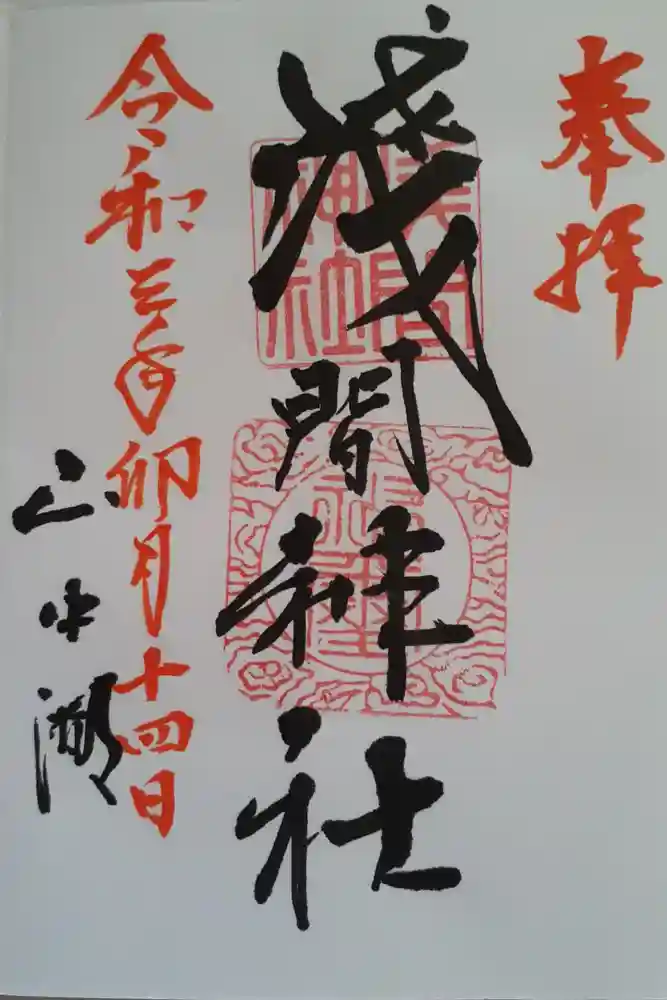 奉拝
浅間神社
浅間神社
令和三年卯月十四日
山中湖